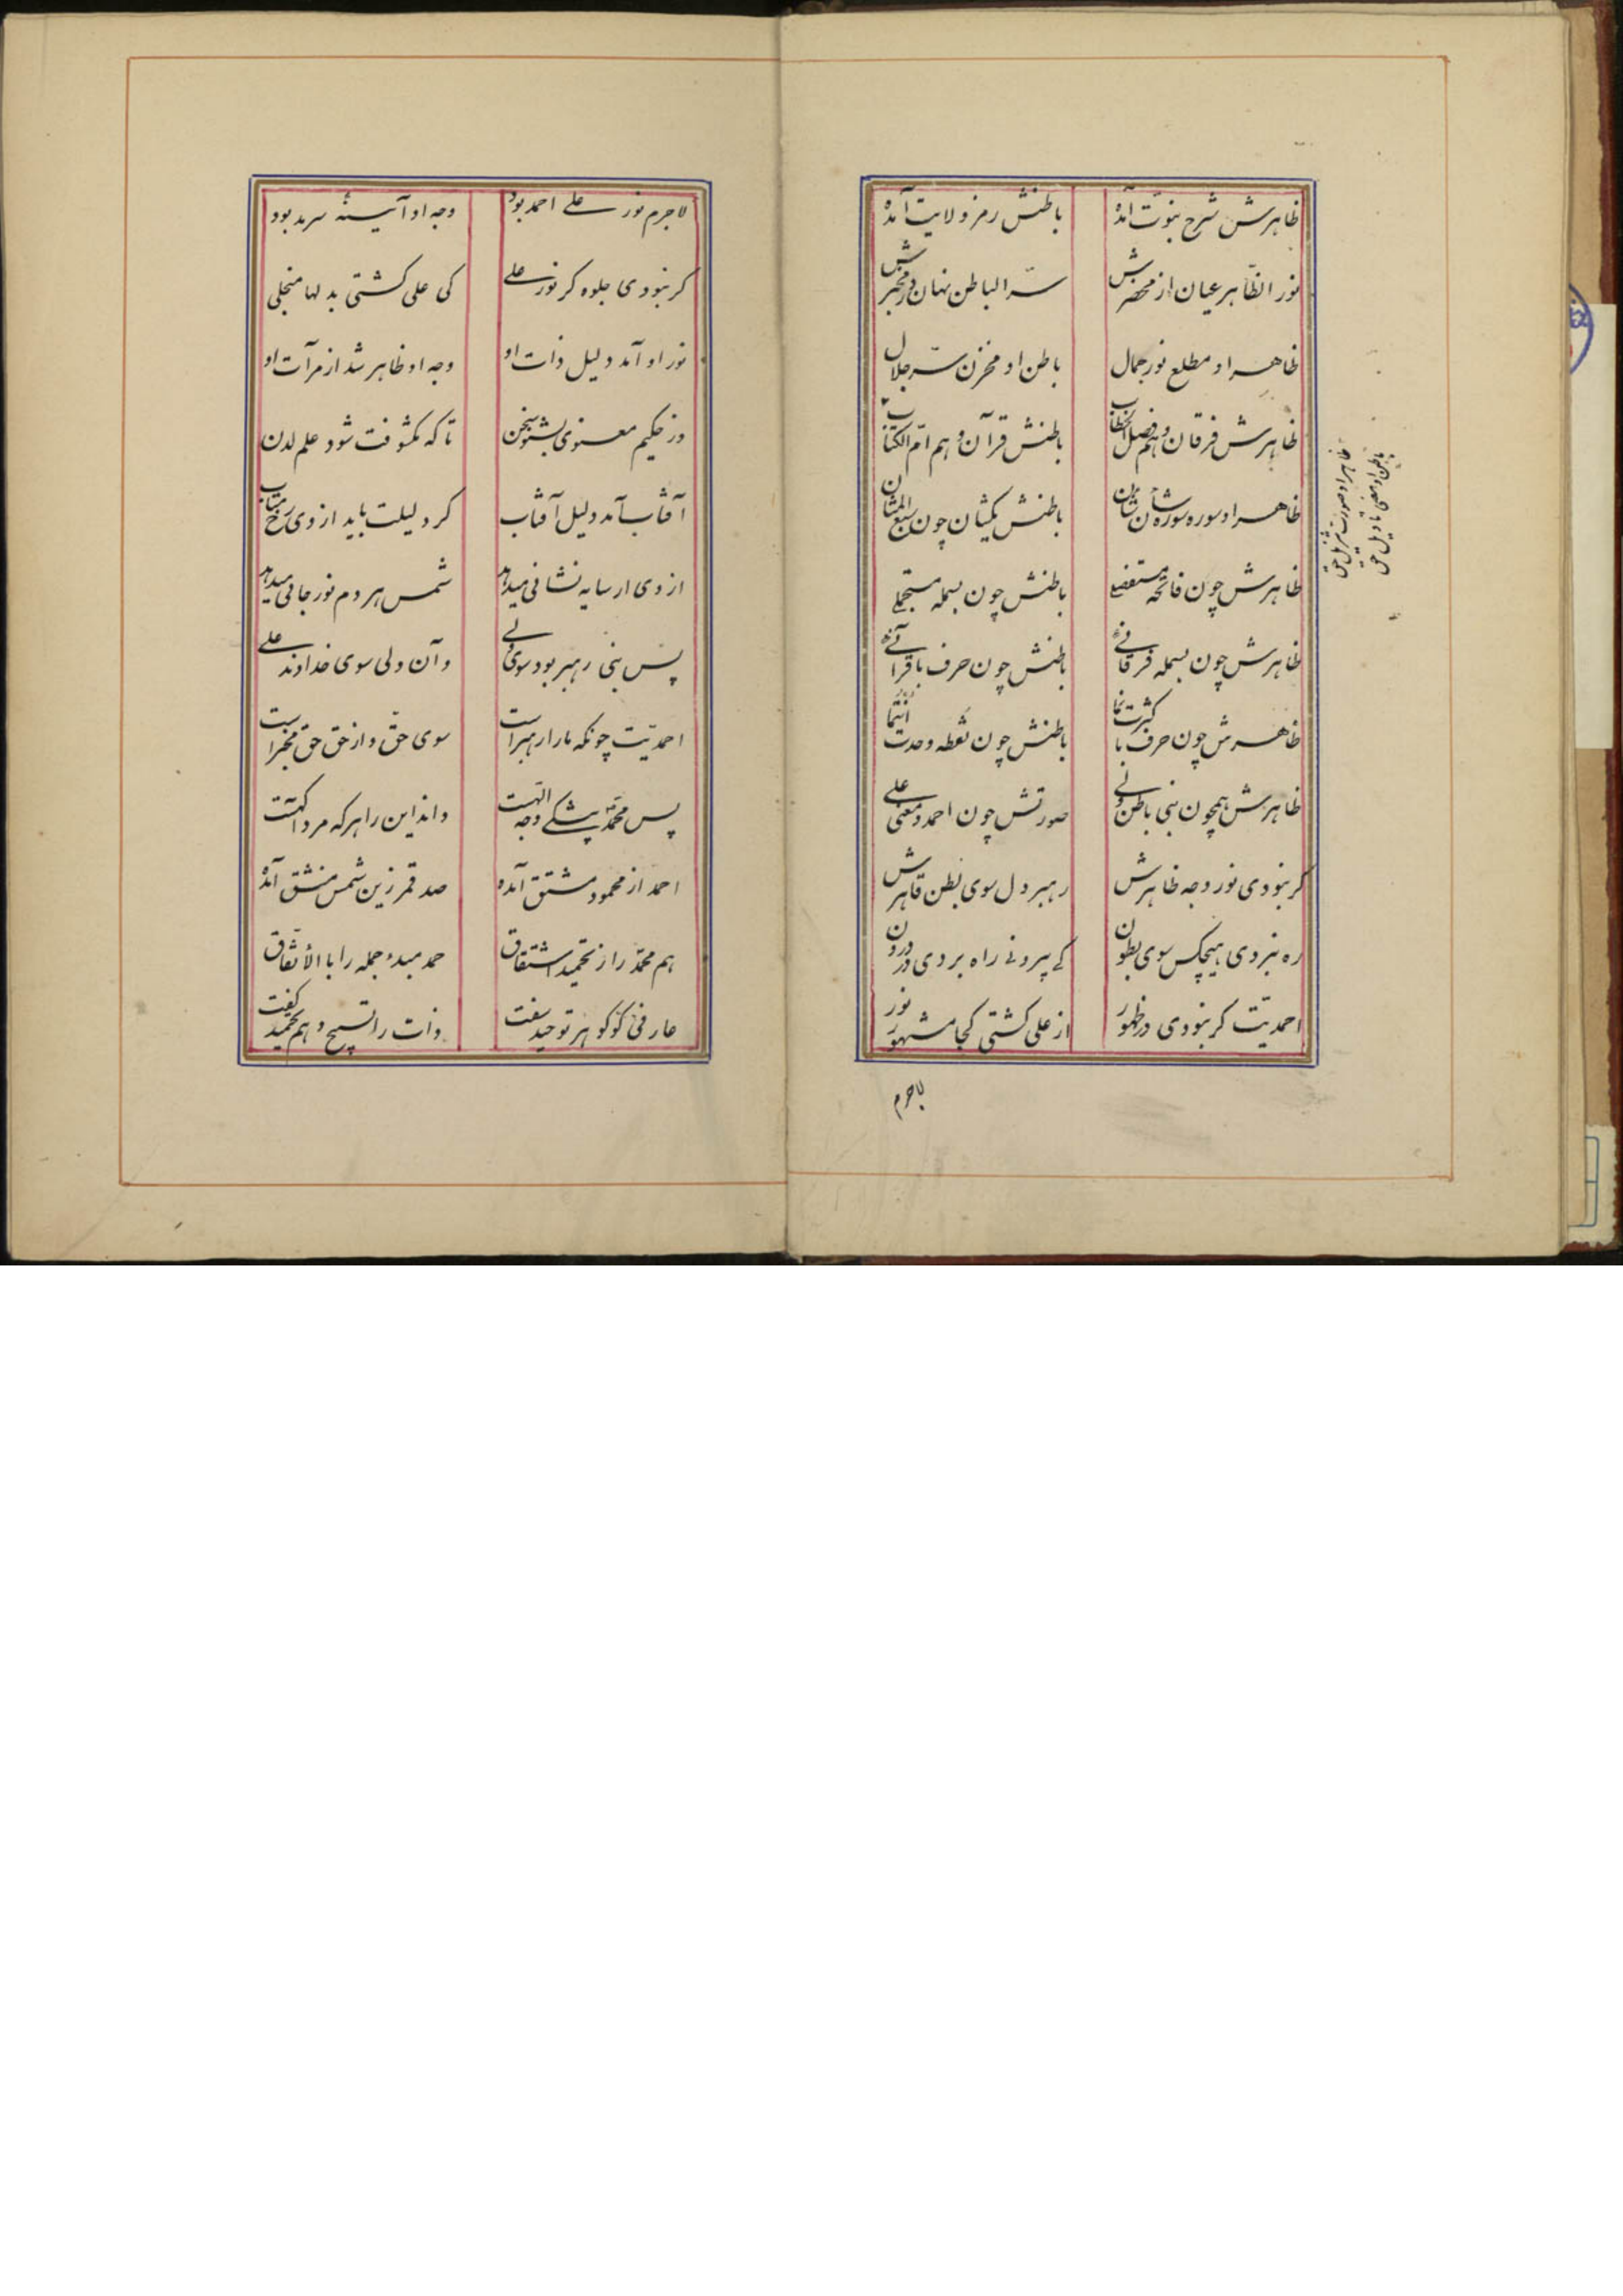 ظاهرش شرح نبوّت آمده باطنش رمز ولایت آمده
نور الظّاهر عیان از محضرش سرّ الباطن نهان در مخبرش
ظاهر او مطلع نور جمال باطن او مخزن سرّ جلال
ظاهرش فرقان و هم فصل الخطاب باطنش قرآن و هم امّ الکتاب
ظاهر او سوره سوره شان شان باطنش یکشان چون سبع المثان
ظاهرش چون فاتحه باطنش چون بسمله
ظاهرش چون بسمله فرقانی باطنش چون حرف با قرآنی
ظاهرش چون حرف با کثرت نما باطنش چون نقطه وحدت انتما
ظاهرش همچون نبی باطن ولی صورتش چون احمد و معنی علی
کر نبودی نور وجه ظاهرش رهبر دل سوی بطن قاهرش
ره نبردی هیچکس سوی بطون کی برونی راه بردی در درون
احمدیّت کر نبودی در ظهور از علی کشتی کجا مشهور نور
ظاهر او صورت تنزیل حق
باطن او معنی تاویل حق
لاجرم
لاجرم نور علی احمد بود وجه او آیینه سرمد بود
کر نبودی جلوه کر نور علی کی علی کشتی بدلها منجلی
نور او آمد دلیل ذات او وجه او ظاهر شد از مرآت او
وز حکیم معنوی بشنو سخن تا که مکشوفت شود علم لدن
آفتاب آمد دلیل آفتاب کر دلیلت باید از وی رخ متاب
از وی ار سایه نشانی میدهد شمس هر دم نور جانی میدهد
پس نبی رهبر بود سوی ولی و آن ولی سوی خداوند علی
احمدیّت چونکه ما را رهبر است سوی حق و از حق حق مخبر است
پس محمّد بیشکی وجه اللهست داند این را هر که مرد آکهست
احمد از محمود مشتق آمده صد قمر زین شمس منشق آمده
هم محمّد را ز تحمید اشتقاق حمد مبدء جمله را بالأتّفاق
عارفی کو کوهر توحید سفت ذات را تسبیح و هم تحمید کفت